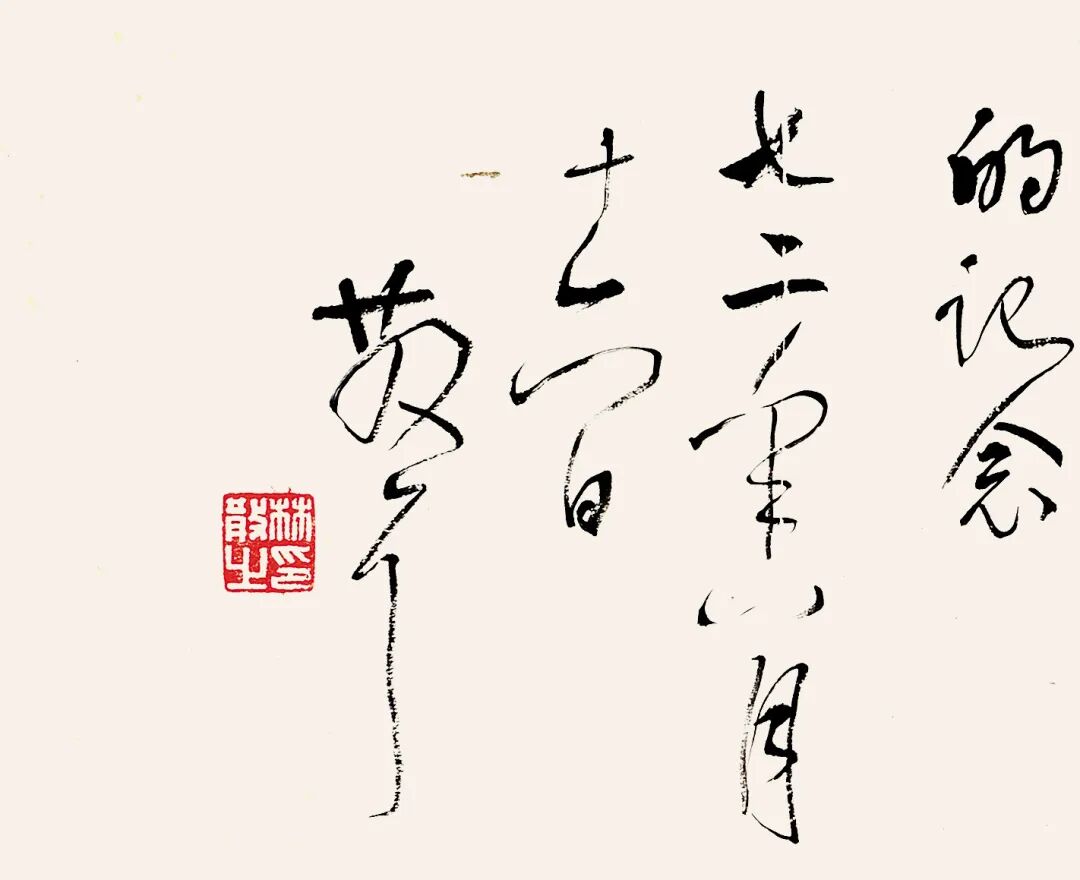 的记念
七二年八月
十六日
散耳
林印
散之